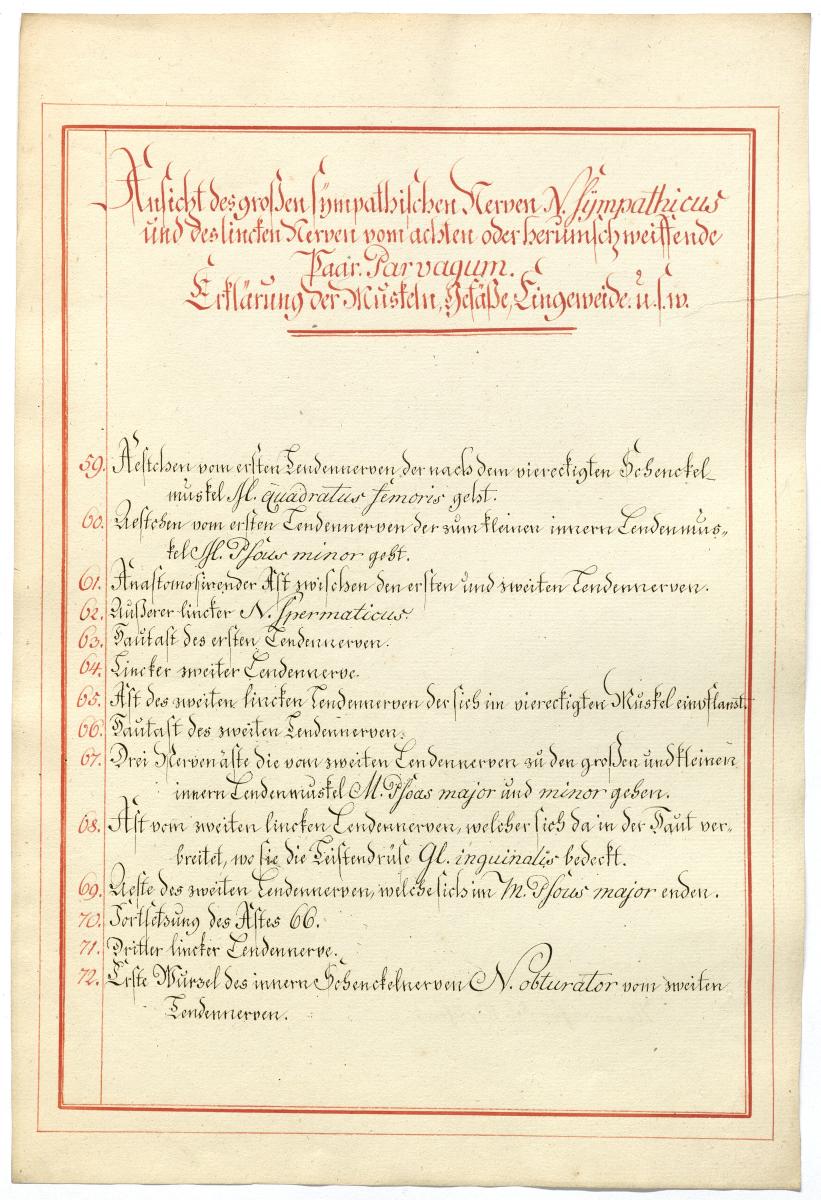 Ansicht des großen sympathischen Nerven N. Sympathicus
und des lincken Nerven vom achten oder herumschweiffende
Paar. Par vagum.
Erklärung der Muskeln, Gefäße, Eingeweide. u. s. w.
59. Aestchen vom ersten Lendennerven der nach dem viereckigten Schenckel-
muskel M. quadratus femoris geht.
60. Aestchen vom ersten Lendennerven der zum kleinen innern Lendenmus-
kel M. Psous minor geht.
61. Anastomosirender Ast zwischen den ersten und zweiten Lendennerven.
62. Äußerer lincker N. Spermaticus.
63. Hautast des ersten Lendennerven.
64. Lincker zweiter Lendennerve.
65. Ast des zweiten lincken Lendennerven der sich im viereckigten Muskel einpflanst.
66. Hautast des zweiten Lendennerven.
67. Drei Nervenäste die vom zweiten Lendennerven zu den großen und kleinen
innern Lendenmuskel M. Psoas major und minor gehen.
68. Ast vom zweiten lincken Lendennerven, welcher sich da in der Haut ver-
breitet, wo sie die Leistendrüse Gl. inguinalis bedeckt.
69. Aeste des zweiten Lendennerven, welche sich im M. Psous major enden.
70. Fortsetzung des Astes 66.
71. Dritter lincker Lendennerve.
72. Erste Wurzel des innern Schenckelnerven N. obturator vom zweiten
Lendennerven.